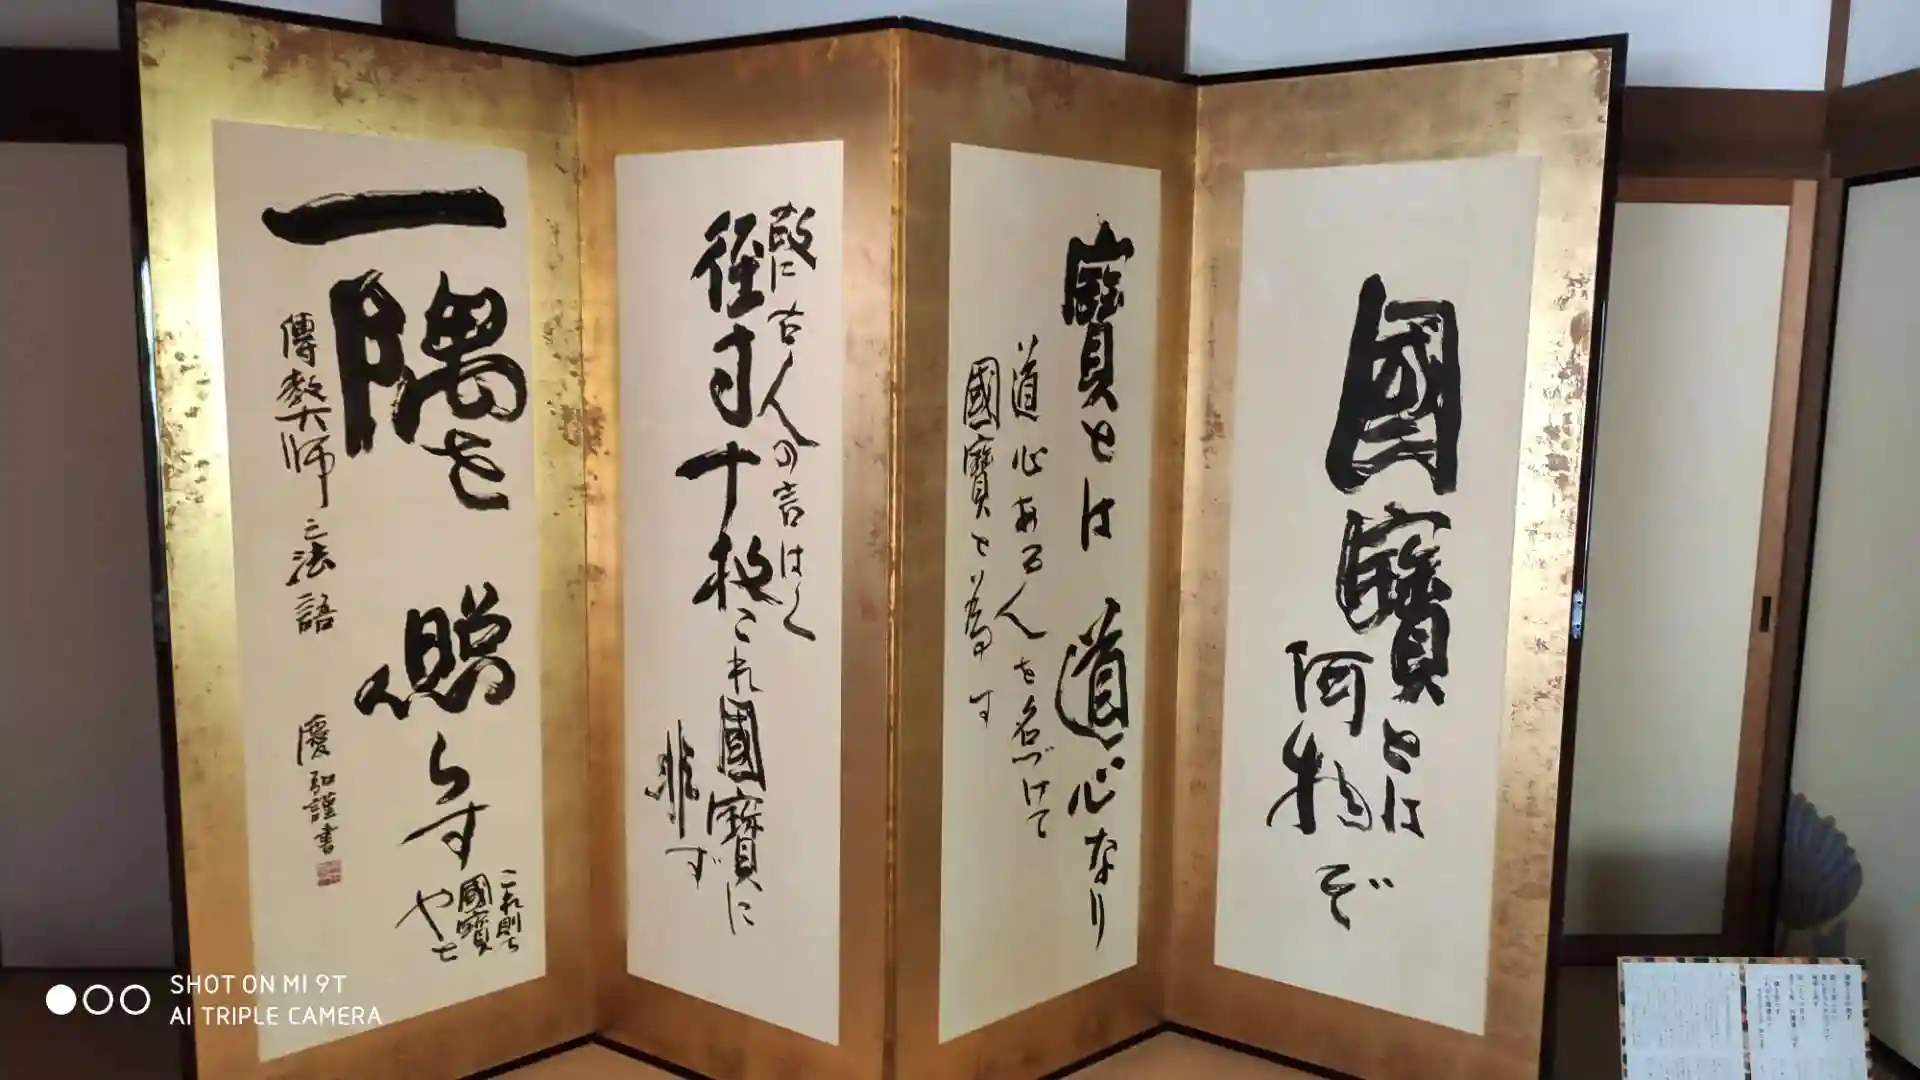 國寶とは
何物ぞ
寶とは道心なり
道心ある人を名づけて
國寶と為す
故に古人の言はく
径寸十枚これ國寶に
非ず
一隅を
照らす
これ則ち
國寶
やと
傳教大師之法語
慶弘謹書
SHOT ON MI 9T
AI TRIPLE CAMERA